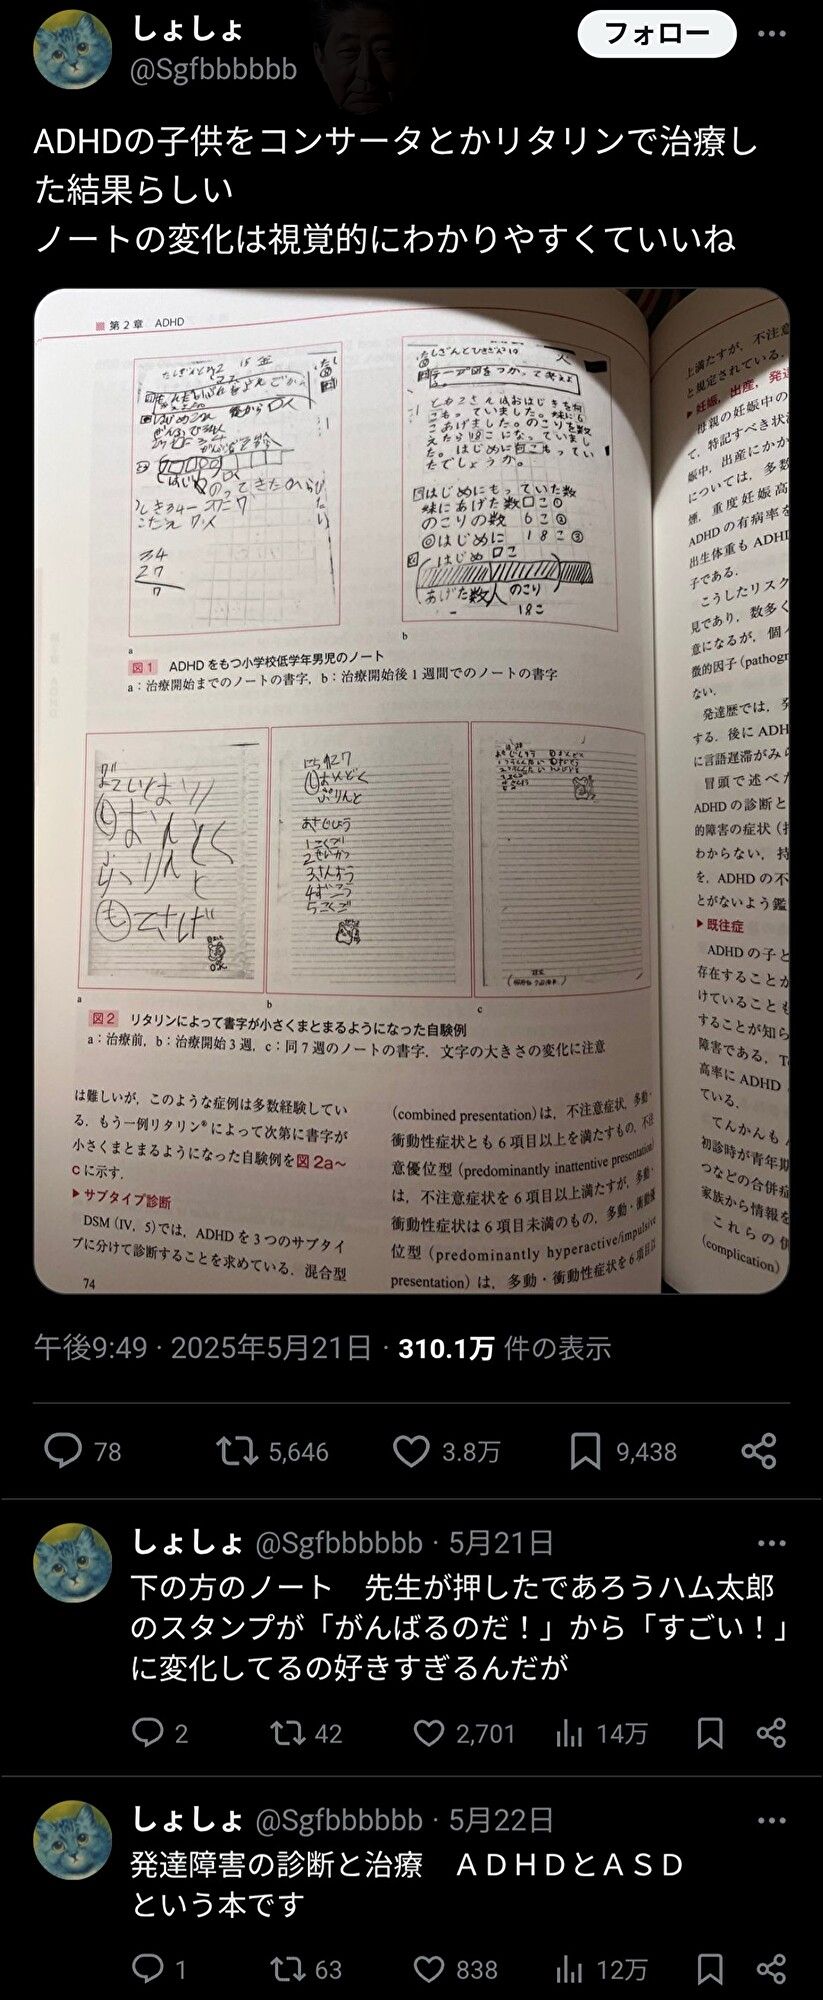 しょしょ
@Sgfbbbbbb
フォロー
ADHDの子供をコンサータとかリタリンで治療し
た結果らしい
ノートの変化は視覚的にわかりやすくていいね
第2章 ADHD
とめこさんはおはじきを何
こもっていました。妹に6
こあげました。のこりを数
えたら18こになっていまし
た。はじめに何こもってい
たでしょうか。
はじめにもっていた数
妹にあげた数口こ①
のこりの数 6こ②
◎はじめに 18こ③
はじめ 口こ
あげた数 のこり
18こ
しき34-27=7
こたえ 7人
34
27
7
a
b
図1 ADHDをもつ小学校低学年男児のノート
a:治療開始までのノートの書字,b:治療開始後1週間でのノートの書字
おんどく
ぷりんと
てさげ
おんどく
ぷりんと
1こくご
2せいかつ
3さんすう
4ずこう
5こくご
a
b
c
図2 リタリンによって書字が小さくまとまるようになった自験例
a:治療前,b:治療開始3週,c:同7週のノートの書字.文字の大きさの変化に注意
は難しいが,このような症例は多数経験してい
る.もう一例リタリン®によって次第に書字が
小さくまとまるようになった自験例を図2a〜
cに示す.
▶サブタイプ診断
DSM(IV,5)では,ADHDを3つのサブタイ
プに分けて診断することを求めている.混合型
74
(combined presentation)は,不注意症状,多動・
衝動性症状とも6項目以上を満たすもの,不注
意優位型(predominantly inattentive presentation)
は,不注意症状を6項目以上満たすが,多動・
衝動性症状は6項目未満のもの,多動・衝動優
位型(predominantly hyperactive/impulsive
presentation)は,多動・衝動性症状を6項目以
上満たすが,不注意
と規定されている.
▶妊娠,出産,発達
母親の妊娠中の
て,特記すべき状
娠中,出産にかか
については,多数
煙,重度妊娠高
ADHDの有病率を
出生体重もADHD
子である.
こうしたリスク
見であり,数多く
意になるが,個
徴的因子(pathog
ない.
発達歴では,発
する.後にADH
に言語遅滞がみら
冒頭で述べた
ADHDの診断と
的障害の症状(
わからない.持
を,ADHDの不
とがないよう鑑
▶既往症
ADHDの子と
存在することが
けていることも
することが知ら
障害である.
高率にADHD
ている.
てんかんも
初診時が青年期
つなどの合併症
家族から情報を
これらの併
(complication)
午後9:49 · 2025年5月21日 · 310.1万 件の表示
78 5,646 3.8万 9,438
しょしょ @Sgfbbbbbb · 5月21日
下の方のノート 先生が押したであろうハム太郎
のスタンプが「がんばるのだ!」から「すごい!」
に変化してるの好きすぎるんだが
2 42 2,701 14万
しょしょ @Sgfbbbbbb · 5月22日
発達障害の診断と治療 ADHDとASD
という本です
1 63 838 12万